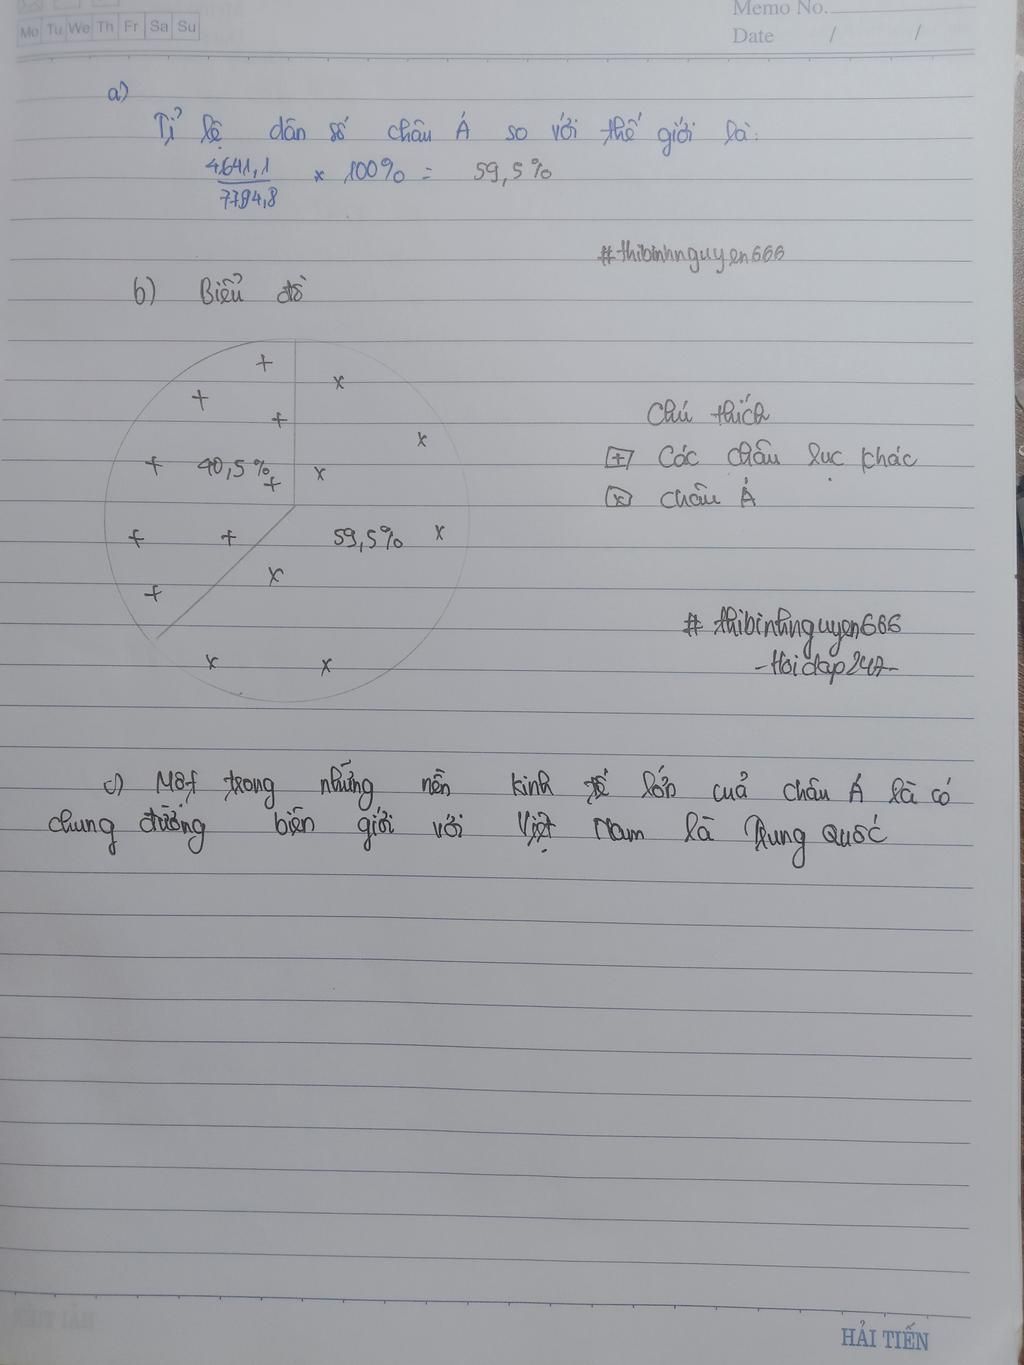 Memo No.
Mo Tu We Th Fr Sa Su
Date / /
a)
Tỉ lệ dân số châu Á so với thế giới là:
4641,1
7794,8
× 100% = 59,5%
#thibinhnguyen666
b) Biểu đồ
40,5%
59,5%
Chú thích
+ Các châu lục khác
x châu Á
# thibinhnguyen666
-Hoidap247-
c) Một trong những nền kinh tế lớn cuả châu Á là có
chung đường biên giới với Việt Nam là Trung Quốc
HẢI TIẾN